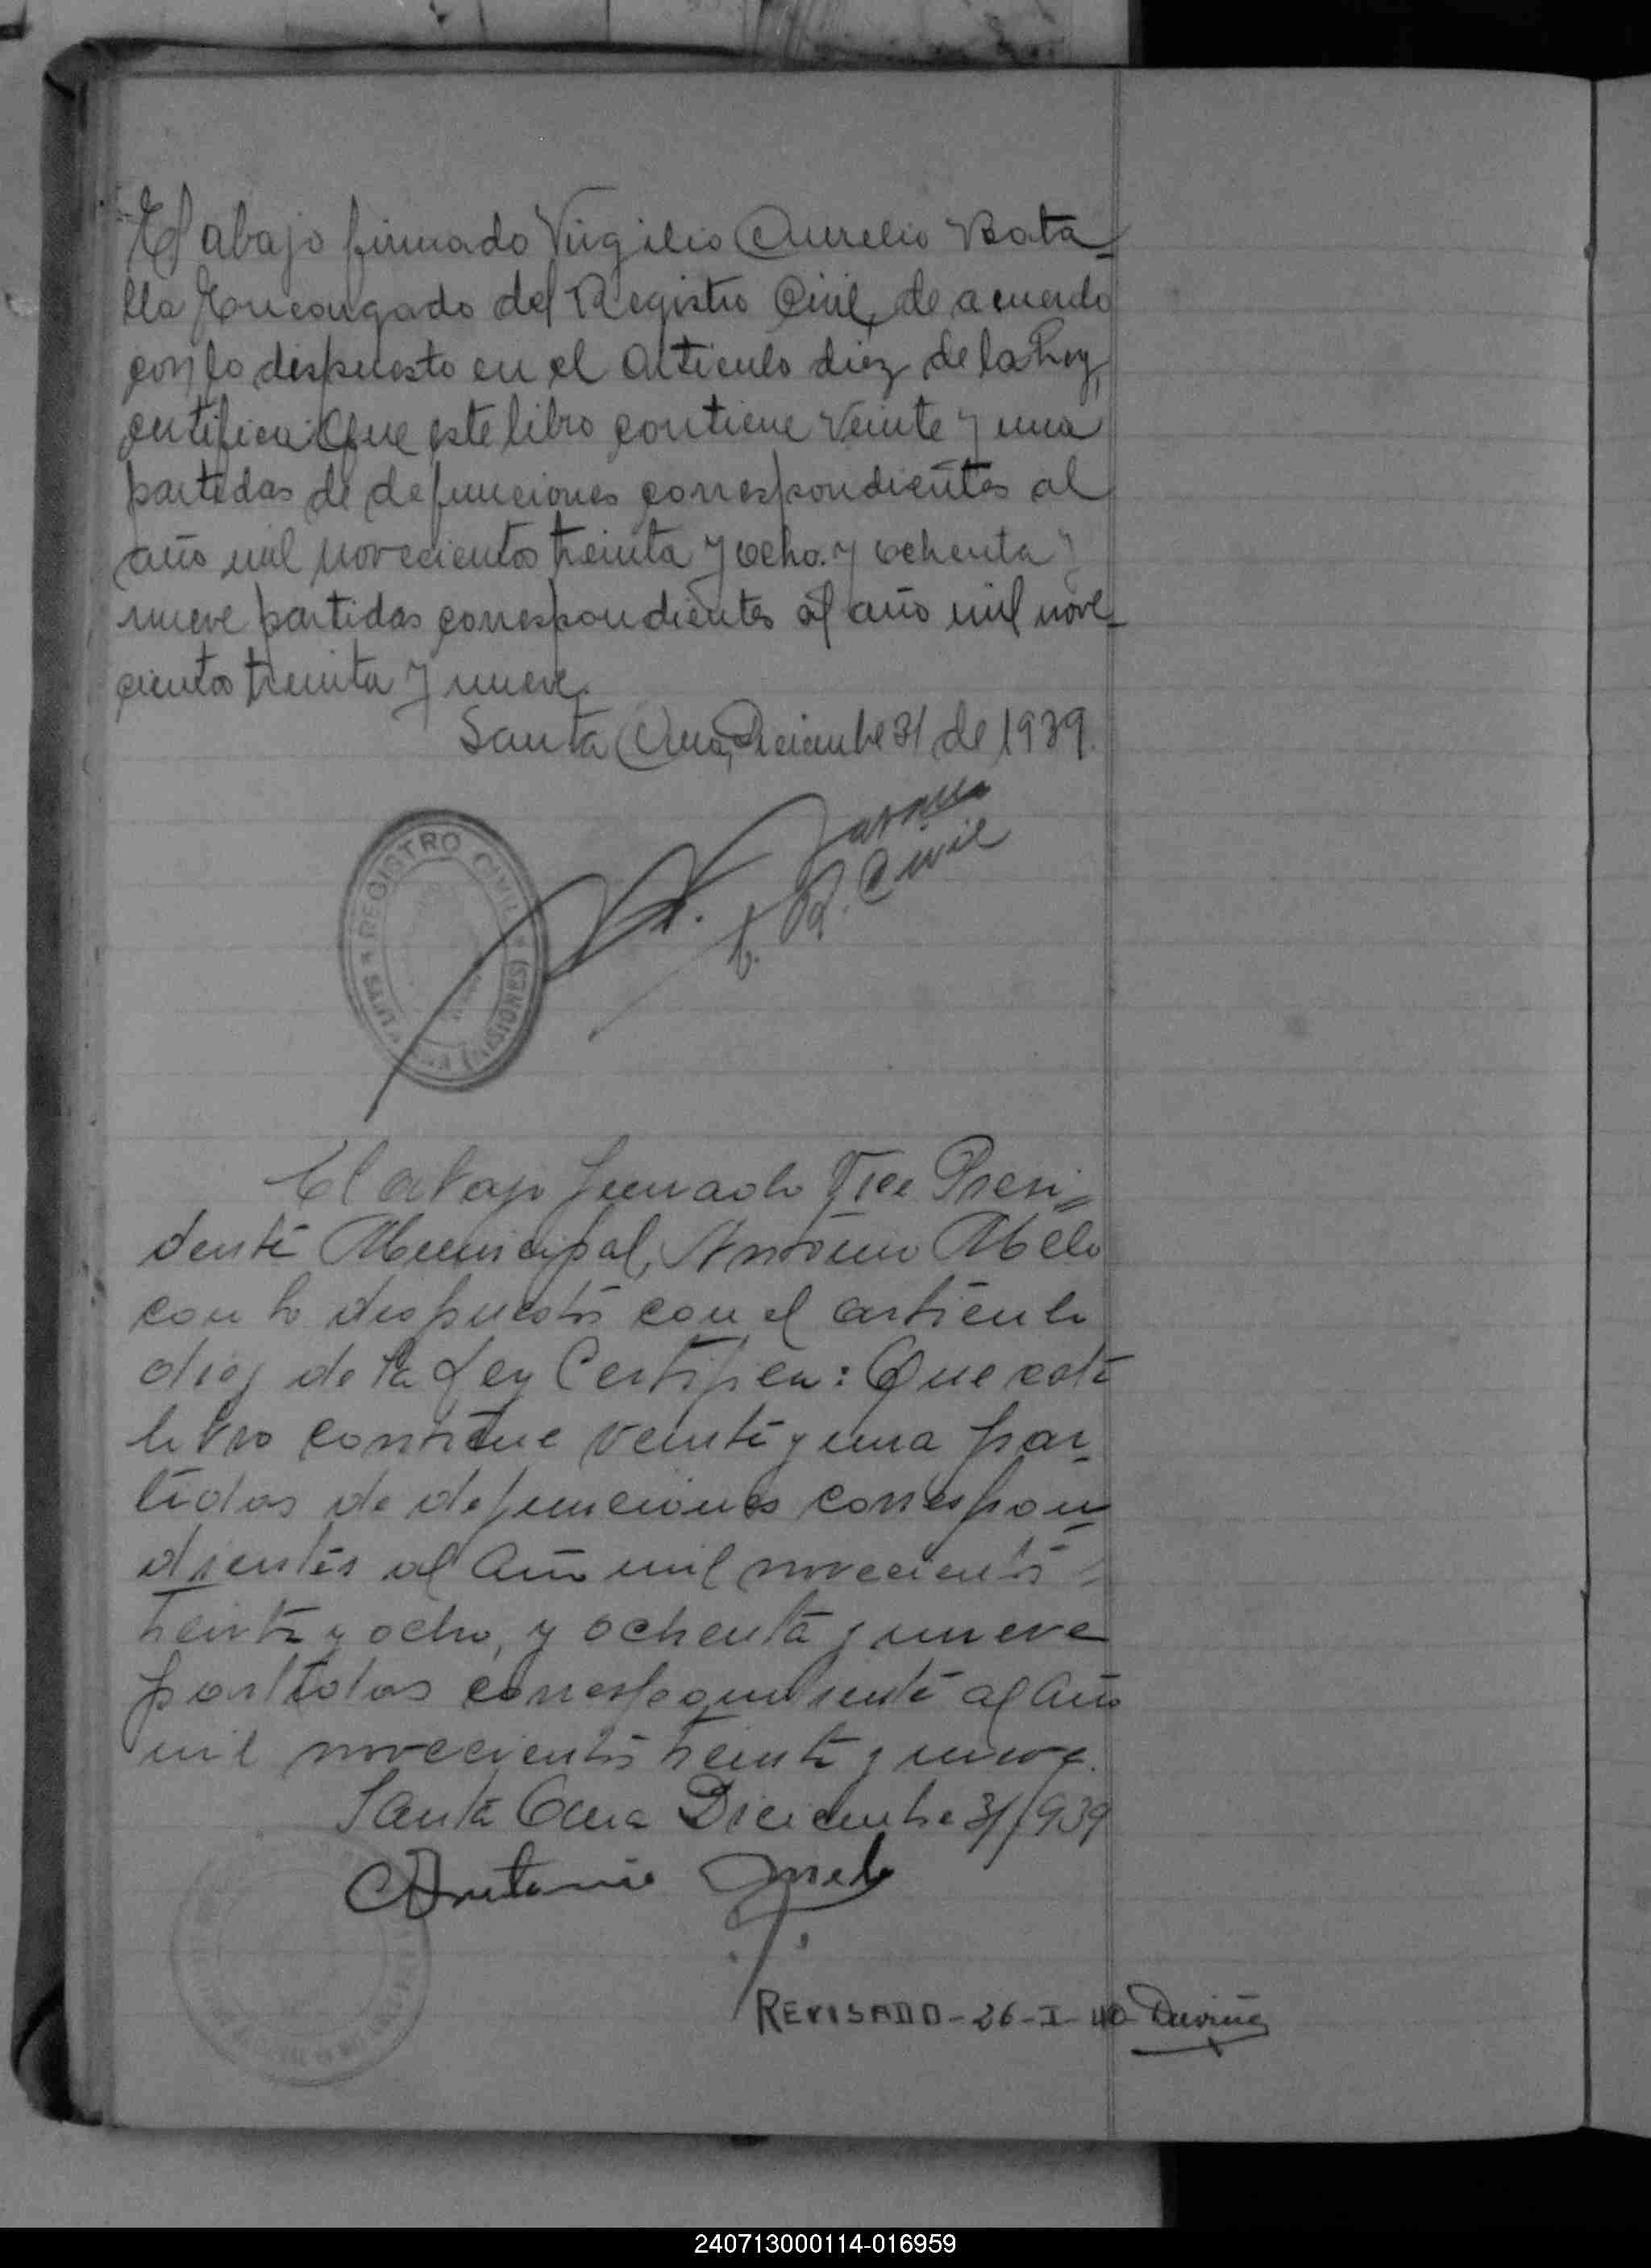 El abajo firmado Virgilio Aurelio Bata-
lla Encargado del Registro Civil, de acuerdo
con lo dispuesto en el Artículo diez de la Ley,
certifica: Que este libro contiene veinte y una
partidas de defunciones correspondientes al
año mil novecientos treinta y ocho. y ochenta y
nueve partidas correspondientes al año mil nove-
cientos treinta y nueve.
Santa Ana, Diciembre 31 de 1939.
R. Civil
REGISTRO CIVIL
El abajo firmado Vice Presi-
dente Municipal, Antonio Melo
con lo dispuesto con el artículo
diez de la Ley Certifica: Que este
libro contiene veinte y una par-
tidas de defunciones correspon-
dientes al año mil novecientos
treinta y ocho, y ochenta y nueve
partidas correspondiente al año
mil novecientos treinta y nueve.
Santa Ana Diciembre 31/939
Antonio Melo
REVISADO-26-I-40
240713000114-016959